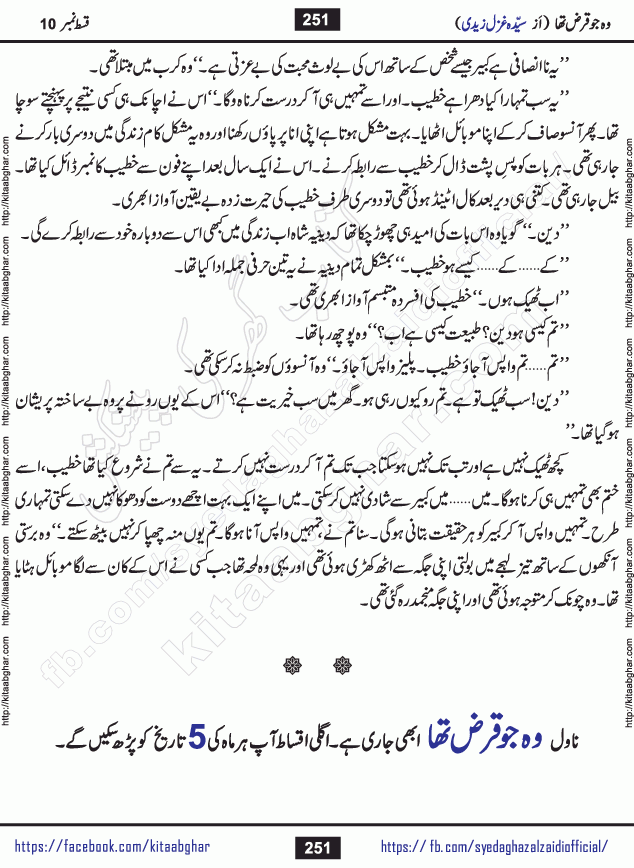 وہ جو قرض تھا (از سیّدہ غزل زیدی)
251
قسط نمبر 10
’’یہ نا انصافی ہے کبیر جیسے شخص کے ساتھ اس کی بے لوث محبت کی بے عزتی ہے۔‘‘ وہ کرب میں مبتلا تھی۔
’’یہ سب تمہارا کیا دھرا ہے خطیب۔ اور اسے تمہیں ہی آ کر درست کرنا ہوگا۔‘‘ اس نے اچانک ہی کسی نتیجے پر پہنچتے سوچا
تھا۔ پھر آنسو صاف کر کے اپنا موبائل اٹھایا۔ بہت مشکل ہوتا ہے اپنی انا پر پاؤں رکھنا اور وہ یہ مشکل کام زندگی میں دوسری بار کرنے
جا رہی تھی۔ ہر بات کو پسِ پشت ڈال کر خطیب سے رابطہ کرنے۔ اس نے ایک سال بعد اپنے فون سے خطیب کا نمبر ڈائل کیا تھا۔
بیل جا رہی تھی۔ کتنی ہی دیر بعد کال اٹینڈ ہوئی تھی تو دوسری طرف خطیب کی حیرت زدہ بے یقین آواز ابھری۔
’’دین۔‘‘ گویا وہ اس بات کی امید ہی چھوڑ چکا تھا کہ دینیہ شاہ اب زندگی میں کبھی اس سے دوبارہ خود سے رابطہ کرے گی۔
’’کے...... کے...... کیسے ہو خطیب۔‘‘ بمشکل تمام دینیہ نے یہ تین حرفی جملہ ادا کیا تھا۔
’’اب ٹھیک ہوں۔‘‘ خطیب کی افسردہ متبسم آواز ابھری تھی۔
’’تم کیسی ہو دین؟ طبیعت کیسی ہے اب؟‘‘ وہ پوچھ رہا تھا۔
’’تم..... تم واپس آ جاؤ خطیب۔ پلیز واپس آ جاؤ۔‘‘ وہ آنسوؤں کو ضبط نہ کر سکی تھی۔
’’دین! سب ٹھیک تو ہے۔ تم رو کیوں رہی ہو۔ گھر میں سب خیریت ہے؟‘‘ اس کے یوں رونے پر وہ بے ساختہ پریشان
ہو گیا تھا۔‘‘
کچھ ٹھیک نہیں ہے اور تب تک نہیں ہو سکتا جب تک تم آ کر درست نہیں کرتے۔ یہ سے تم نے شروع کیا تھا خطیب، اسے
ختم بھی تمہیں ہی کرنا ہوگا۔ میں...... میں کبیر سے شادی نہیں کر سکتی۔ میں اپنے ایک بہت اچھے دوست کو دھوکا نہیں دے سکتی تمہاری
طرح۔ تمہیں واپس آ کر کبیر کو ہر حقیقت بتانی ہوگی۔ سنا تم نے، تمہیں واپس آنا ہوگا۔ تم یوں منہ چھپا کر نہیں بیٹھ سکتے۔‘‘ وہ برستی
آنکھوں کے ساتھ تیز لہجے میں بولتی اپنی جگہ سے اٹھ کھڑی ہوئی تھی اور یہی وہ لمحہ تھا جب کسی نے اس کے کان سے لگا موبائل ہٹایا
تھا۔ وہ چونک کر متوجہ ہوئی تھی اور اپنی جگہ منجمد رہ گئی تھی۔
ناول وہ جو قرض تھا ابھی جاری ہے۔ اگلی اقساط آپ ہر ماہ کی 5 تاریخ کو پڑھ سکیں گے۔
https://facebook.com/kitaabghar
251
https:// fb.com/syedaghazalzaidiofficial/
http://kitaabghar.com http://kitaabghar.com http://kitaabghar.com http://kitaabghar.com http://kitaabghar.com http://kitaabghar.com
http://kitaabghar.com http://kitaabghar.com http://kitaabghar.com http://kitaabghar.com http://kitaabghar.com http://kitaabghar.com
کتاب گھر کی پیشکش
fb.com/syedaghazalzaidiofficial/
kitaabghar.com